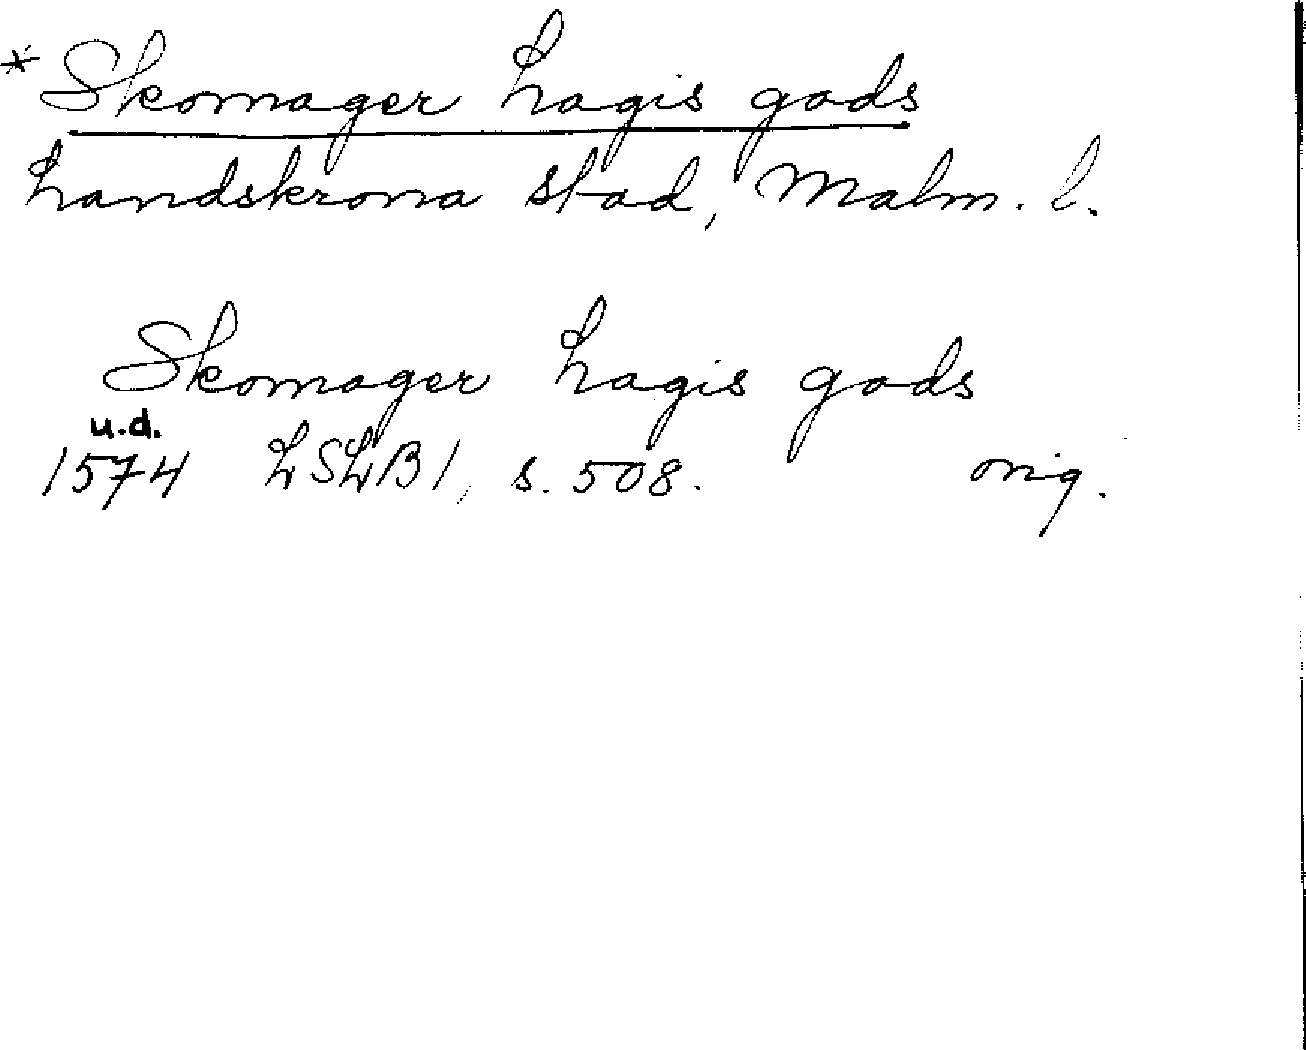 * Skomager Lagis gods
Landskrona stad, Malm. l.
Skomager Lagis gods
u.d.
1574 LSLB 1, s. 508. orig.